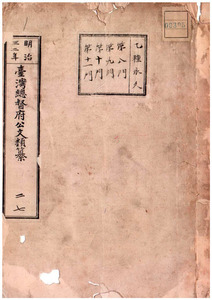 乙種永久
第八門
第九門
第十門
第十一門
明治
三二年
臺灣總督府公文類纂
二七